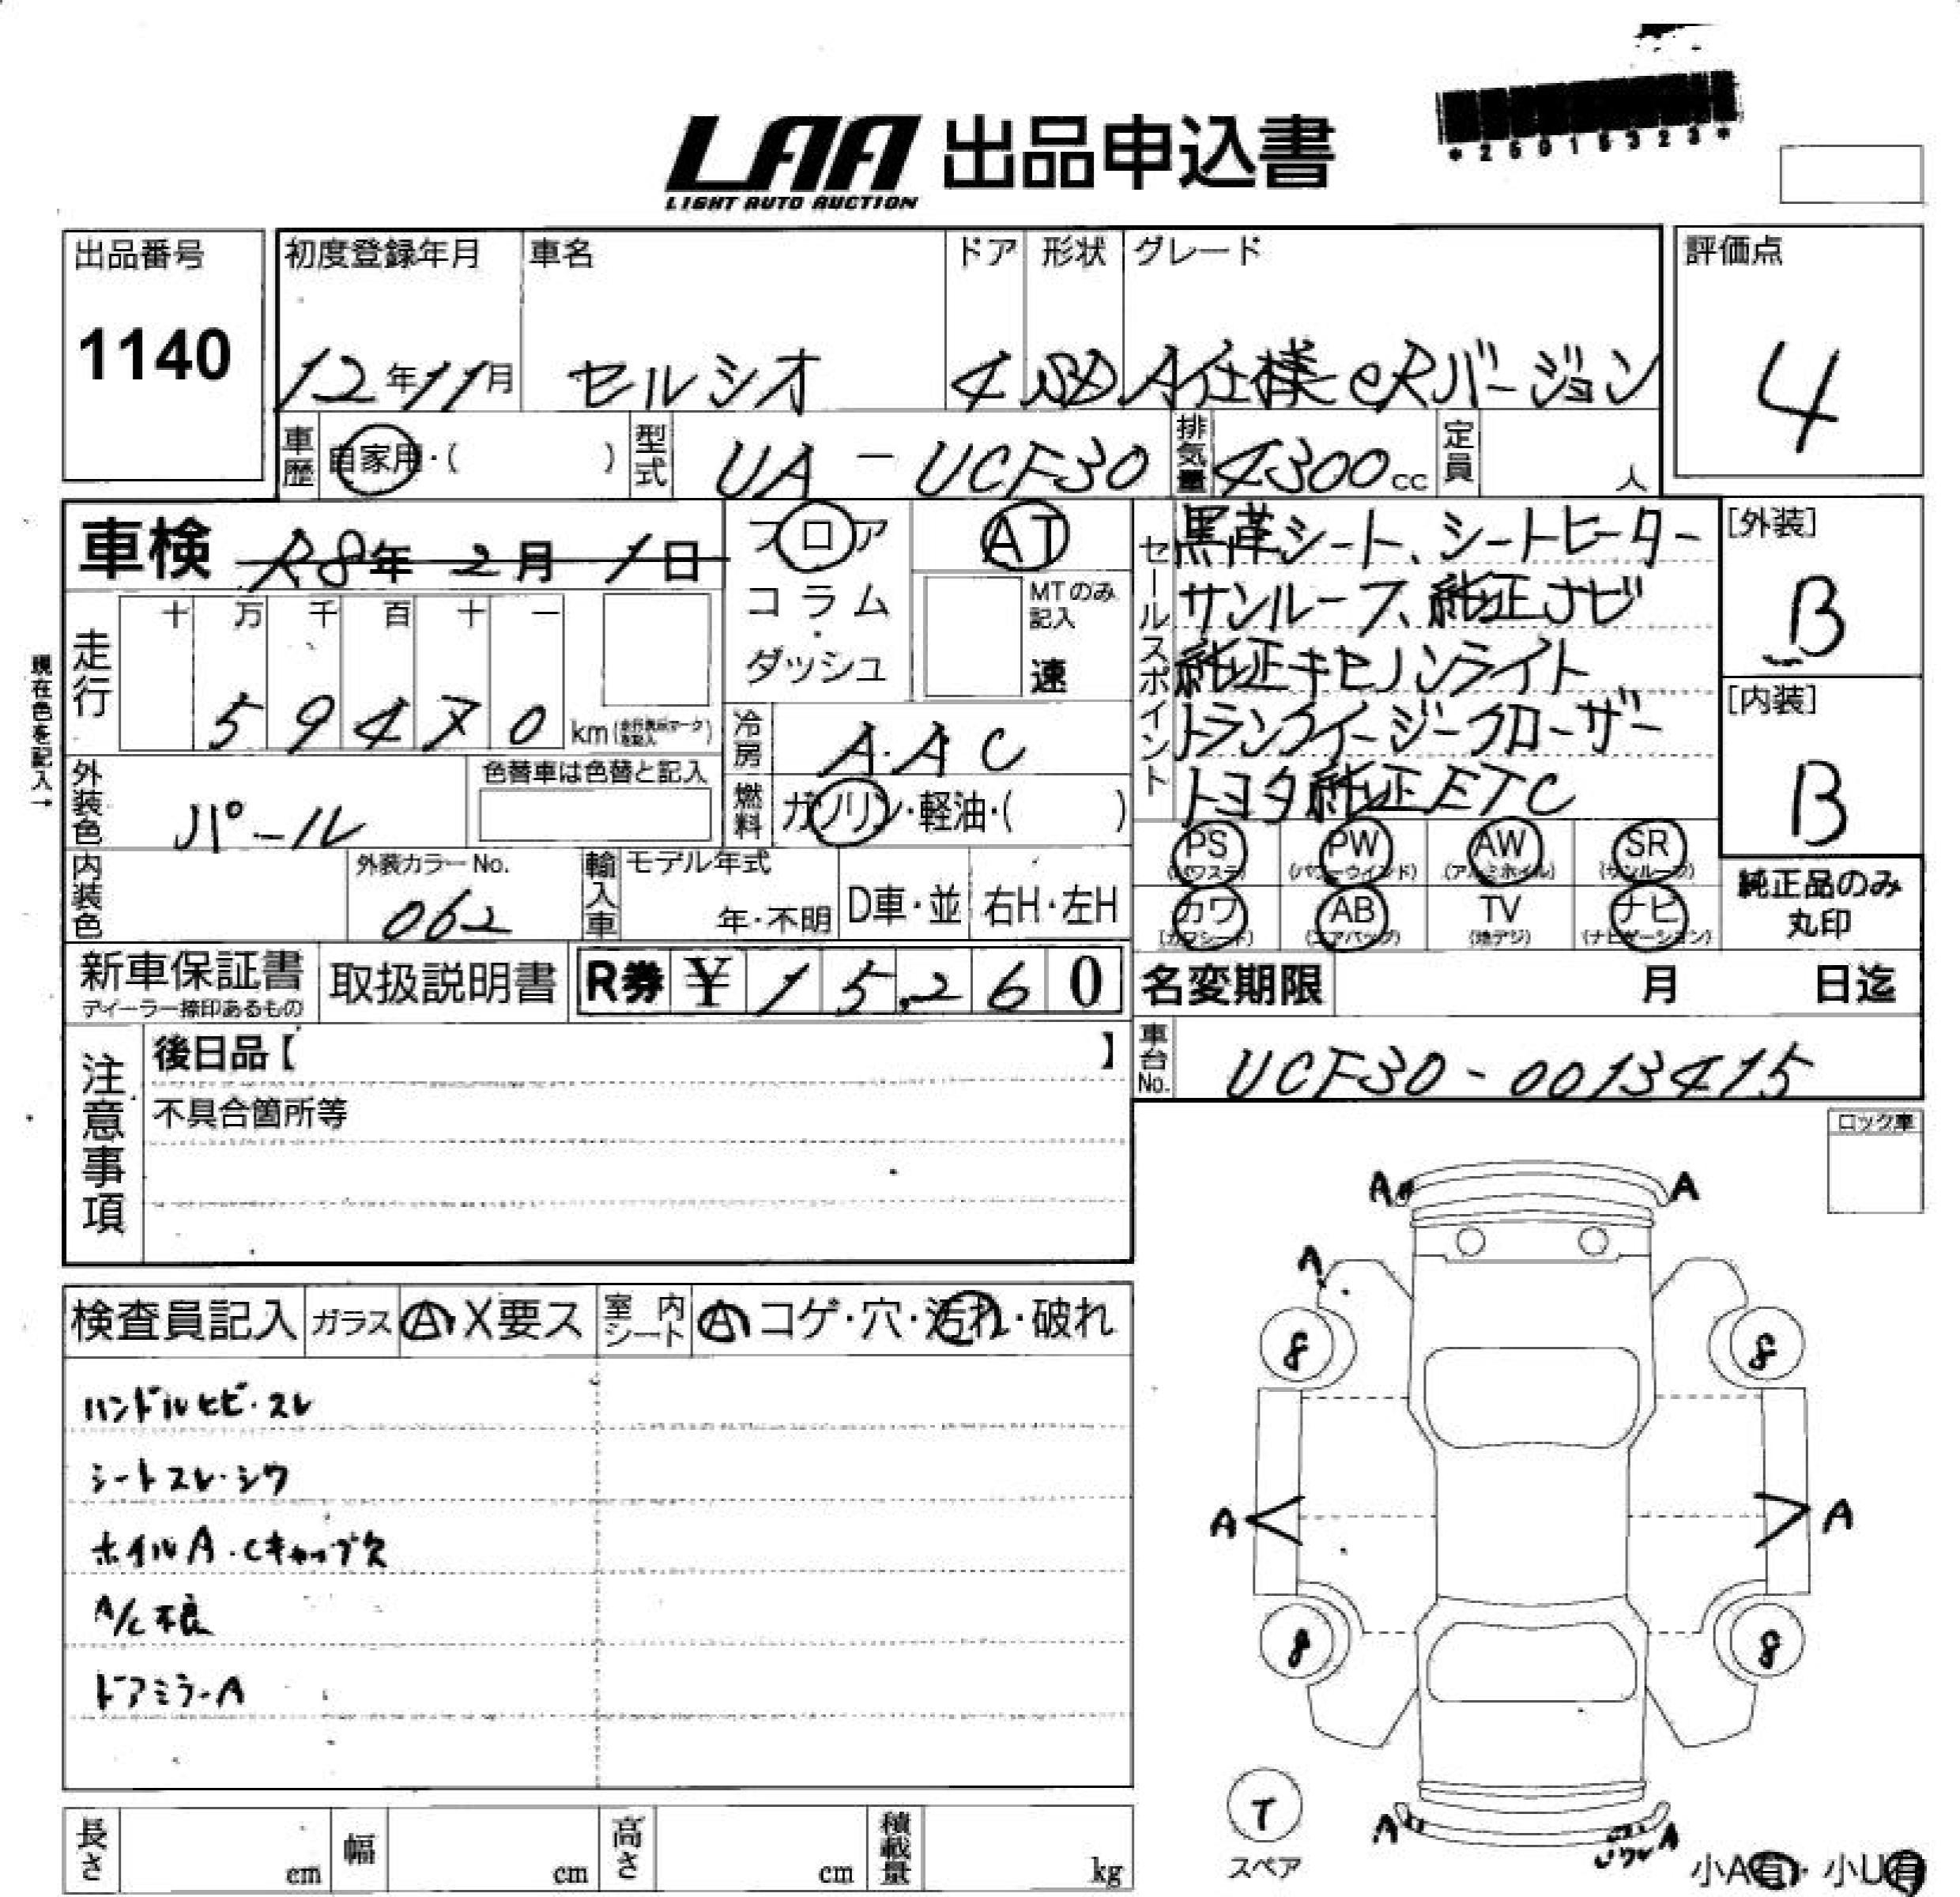 *25015323*
LAA 出品申込書
LIGHT AUTO AUCTION
出品番号 初度登録年月 車名 ドア 形状 グレード 評価点
1140 12年11月 セルシオ 4 SD A仕様eRバージョン 4
車歴 自家用・( ) 型式 UA - UCF30 排気量 4300cc 定員 人
車検 R8年 2月 1日 フロア AT セールスポイント 黒革シート、シートヒーター [外装]
コラム・ MTのみ記入 サンルーフ、純正ナビ B
走行 十 万 千 百 十 一 ダッシュ 速 純正キセノンライト [内装]
59470 km 冷房 A.AC トランクイージークローザー B
現在色を記入→
外装色 パール 色替車は色替と記入 燃料 ガソリン・軽油・( ) トヨタ純正ETC
PS (パワステ) PW (パワーウインド) AW (アルミホイル) SR (サンルーフ) 純正品のみ
カワ (カワシート) AB (エアバッグ) TV (地デジ) ナビ (ナビゲーション) 丸印
内装色 外装カラーNo. 062 輸入車 モデル年式 年・不明 D車・並 右H・左H
新車保証書 ディーラー捺印あるもの 取扱説明書 R券 ¥15,260 名変期限 月 日迄
注意事項 後日品【 】 車台No. UCF30-0013415
不具合箇所等
ロック車
A A
A
検査員記入 ガラス A・X要ス 室内シート A コゲ・穴・汚れ・破れ
8 8
ハンドルヒビ・スレ
シートスレ・シワ
A A
ホイルA・Cキャップ欠
A/C不良
8 8
ドアミラーA
T
スペア
A A
小A有・小U有
長さ cm 幅 cm 高さ cm 積載量 kg